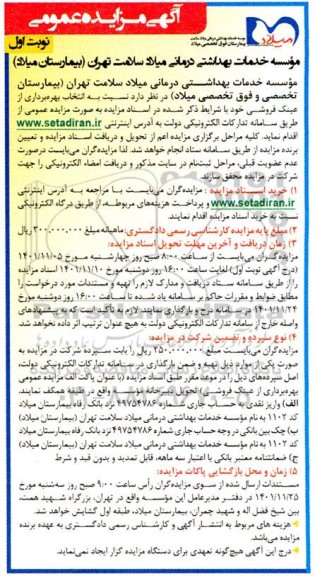 آگهی مزایده عمومی
میلاد
مؤسسه خدمات بهداشتی درمانی میلاد سلامت تهران
بیمارستان فوق تخصصی میلاد
نوبت اول
مؤسسه خدمات بهداشتی درمانی میلاد سلامت تهران (بیمارستان میلاد)
مؤسسه خدمات بهداشتی درمانی میلاد سلامت تهران (بیمارستان
تخصصی و فوق تخصصی میلاد) در نظر دارد نسبت به انتخاب بهره‌برداری از
عینک فروشی خود با شرایط ذکر شده در اسناد مزایده به صورت مزایده عمومی از
طریق سامانه تدارکات الکترونیکی دولت به آدرس اینترنتی www.setadiran.ir
اقدام نماید. کلیه مراحل برگزاری مزایده اعم از تحویل و دریافت اسناد مزایده و تعیین
برنده مزایده از طریق سامانه ستاد انجام خواهد شد. لذا مزایده‌گران می‌بایست درصورت
عدم عضویت قبلی، مراحل ثبت‌نام در سایت مذکور و دریافت امضاء الکترونیکی را جهت
شرکت در مزایده محقق سازند.
۱) خرید اسناد مزایده : مزایده‌گران می‌بایست با مراجعه به آدرس اینترنتی
www.setadiran.ir و پرداخت هزینه‌های مربوطه، از طریق درگاه الکترونیکی
نسبت به خرید اسناد مزایده اقدام نمایند.
۲) مبلغ پایه مزایده کارشناسی رسمی دادگستری: ماهیانه مبلغ ۳۰۰,۰۰۰,۰۰۰ ریال
۳) زمان دریافت و آخرین مهلت تحویل اسناد مزایده:
مزایده‌گران می‌بایست از ساعت ۸:۰۰ صبح روز چهارشنبه مورخ ۱۴۰۱/۱۱/۰۵
(درج آگهی نوبت اول) لغایت ساعت ۱۶:۰۰ روز دوشنبه مورخ ۱۴۰۱/۱۱/۱۰ اسناد مزایده
را از طریق سامانه ستاد دریافت و مدارک لازم را تهیه و مستندات مورد درخواست را
مطابق ضوابط و مقررات حاکم بر سامانه یاد شده تا ساعت ۱۶:۰۰ روز دوشنبه مورخ
۱۴۰۱/۱۱/۲۴ در سامانه درج و بارگذاری نمایند. لازم به تأکید است که به پیشنهادهای
واصله خارج از سامانه تدارکات الکترونیکی دولت به هیچ عنوان ترتیب اثر داده نخواهد شد.
۴) نوع سپرده و تضمین شرکت در مزایده:
مزایده‌گران می‌بایست مبلغ ۲۵۰,۰۰۰,۰۰۰ ریال را بابت سپرده شرکت در مزایده به
صورت یکی از موارد ذیل تهیه و ضمن بارگذاری در سامانه تدارکات الکترونیکی دولت،
اصل سپرده‌های ذیل را در موعد مقرر طبق اسناد مزایده (با عنوان پاکت الف مزایده عمومی
بهره‌برداری از عینک فروشی) تحویل دبیرخانه مؤسسه واقع در طبقه همکف نمایند.
الف) واریز نقدی به حساب جاری شماره ۴۹۷۵۴۷۸۶ نزد بانک رفاه بیمارستان میلاد
کد ۱۱۰۲ به نام مؤسسه خدمات بهداشتی درمانی میلاد سلامت تهران (بیمارستان میلاد)
ب) چک بین بانکی در وجه حساب جاری شماره ۴۹۷۵۴۷۸۶ نزد بانک رفاه بیمارستان میلاد
کد ۱۱۰۲ به نام مؤسسه خدمات بهداشتی درمانی میلاد سلامت تهران (بیمارستان میلاد)
ج) ضمانتنامه معتبر بانکی با اعتبار سه ماهه، قابل تمدید و بدون قید و شرط
۵) زمان و محل بازگشایی پاکات مزایده:
مستندات ارسال شده از سوی مزایده‌گران رأس ساعت ۹:۰۰ صبح روز سه‌شنبه مورخ
۱۴۰۱/۱۱/۲۵ در دفتر مدیرعامل این مؤسسه واقع در تهران، بزرگراه شهید همت،
بین شیخ فضل اله و شهید چمران، بیمارستان میلاد، طبقه اول گشایش خواهد شد.
هزینه های مربوط به انتشار آگهی و کارشناس رسمی دادگستری به عهده برنده
مزایده می‌باشد.
درج این آگهی هیچ‌گونه تعهدی برای دستگاه مزایده گزار ایجاد نمی‌نماید.